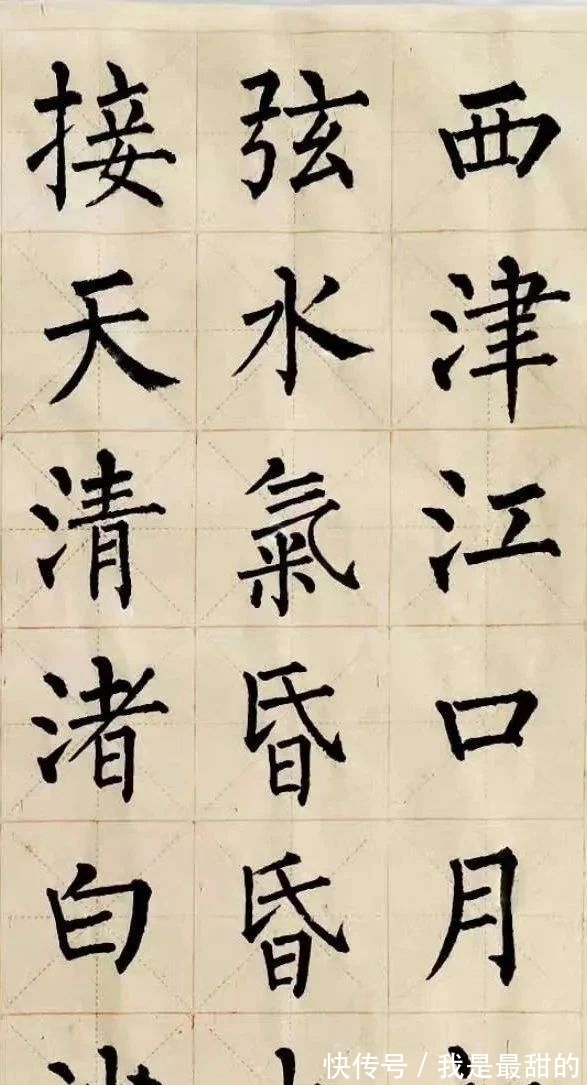 西津江口月
弦水氣昏昏
接天清渚白
快传号 / 我是最甜的